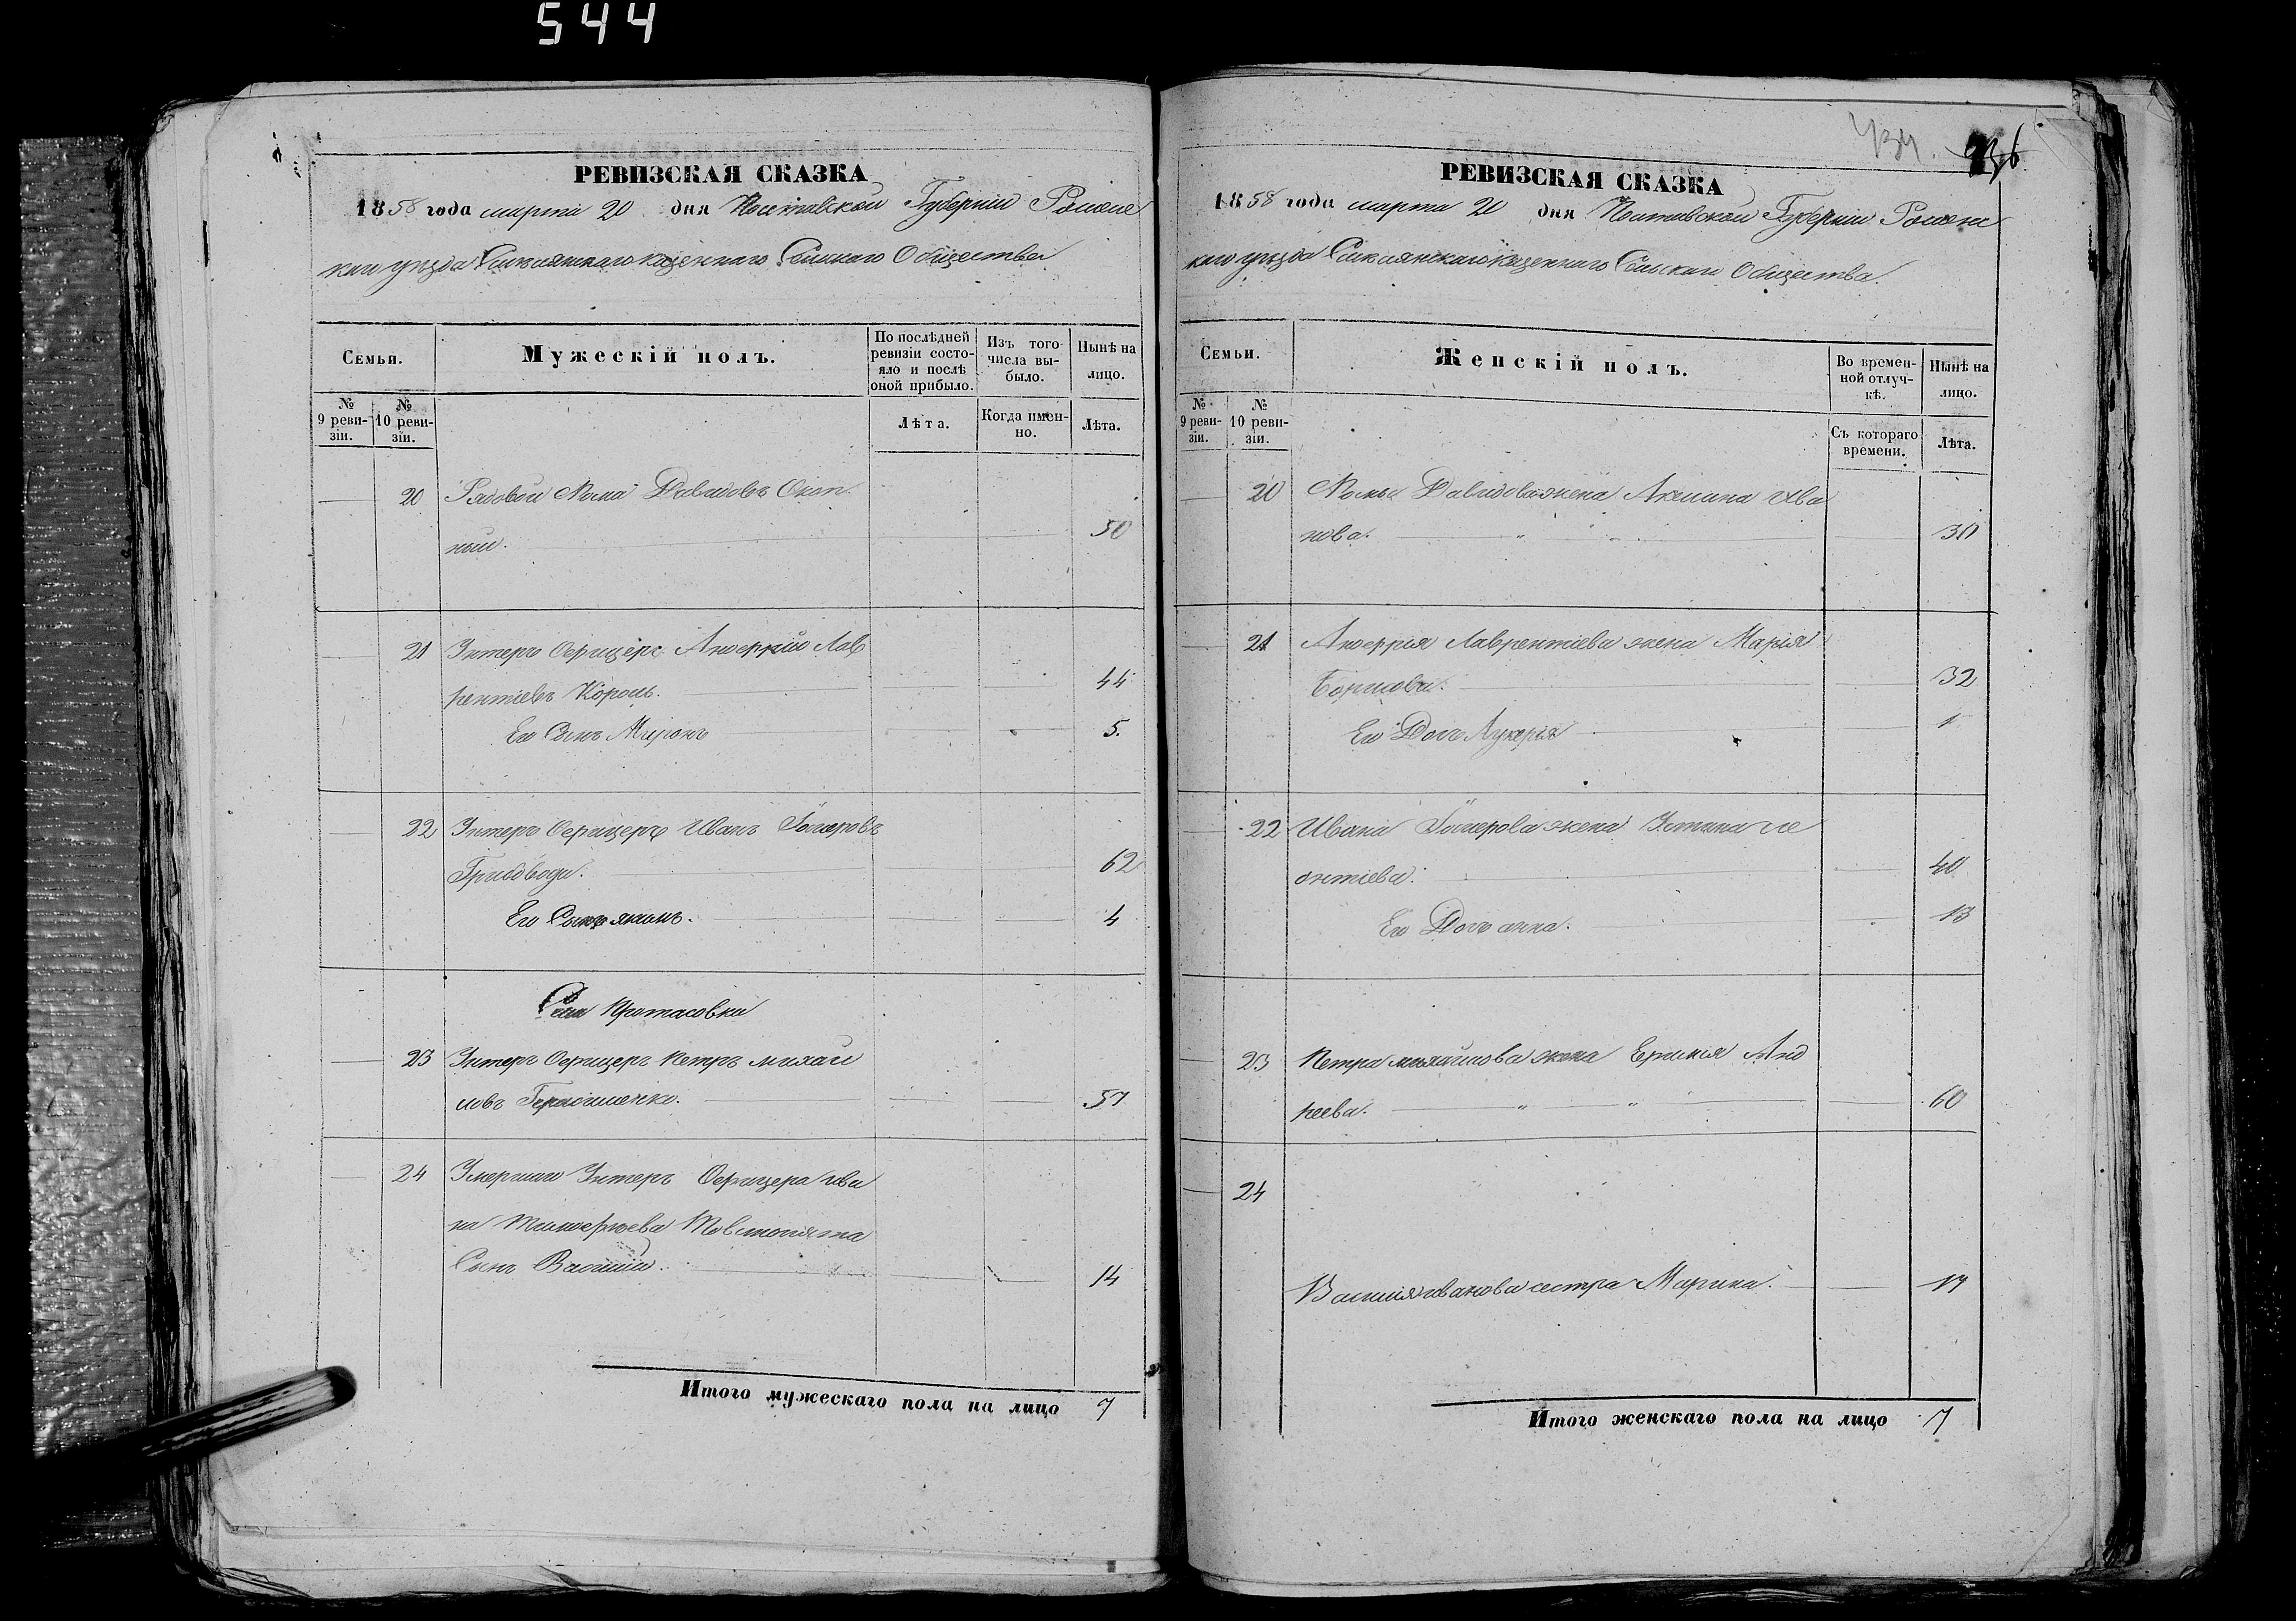 544
РЕВИЗСКАЯ СКАЗКА
1858 года марта 20 дня Полтавской Губерніи Роменс
каго уѣзда казеннаго Сельскаго Общества
Семьи.
Мужескій полъ.
По послѣдней ревизіи состояло и послѣ оной прибыло.
Изъ того числа выбыло.
Нынѣ на лицо.
№ 9 ревизіи.
№ 10 ревизіи.
Лѣта.
Когда именно.
Лѣта.
20 Рядовой Рома Давидовъ
ный. 50
21 Унтеръ Офицеръ Лав
рентіевъ Король. 44
Его Сынъ Миронъ 5.
22 Унтеръ Офицеръ Иванъ
62
Его Сынъ Якимъ. 4
Села Протасовки
23 Унтеръ Офицеръ Петръ Михаи
ловъ Герасименко. 57
24 Умершаго Унтеръ Офицера Ива
на Тимофеева
Сынъ Василій. 14
Итого мужескаго пола на лицо 7
434. 436
РЕВИЗСКАЯ СКАЗКА
1858 года марта 20 дня Полтавской Губерніи Роменс
каго уѣзда казеннаго Сельскаго Общества.
Семьи.
Женскій полъ.
Во временной отлучкѣ.
Нынѣ на лицо.
№ 9 ревизіи.
№ 10 ревизіи.
Съ котораго времени.
Лѣта.
20 Давидова жена Акилина Ива
нова. 30
21 Лаврентіева жена Марія
Борисова. 32
Его Дочь Лукерія 1
22 Ивана жена Устина Ле
онтіева. 40
Его Дочь Анна. 13
23 Петра Михайлова жена Анд
реева. 60
24
Василія Иванова сестра Марина. 17
Итого женскаго пола на лицо 7